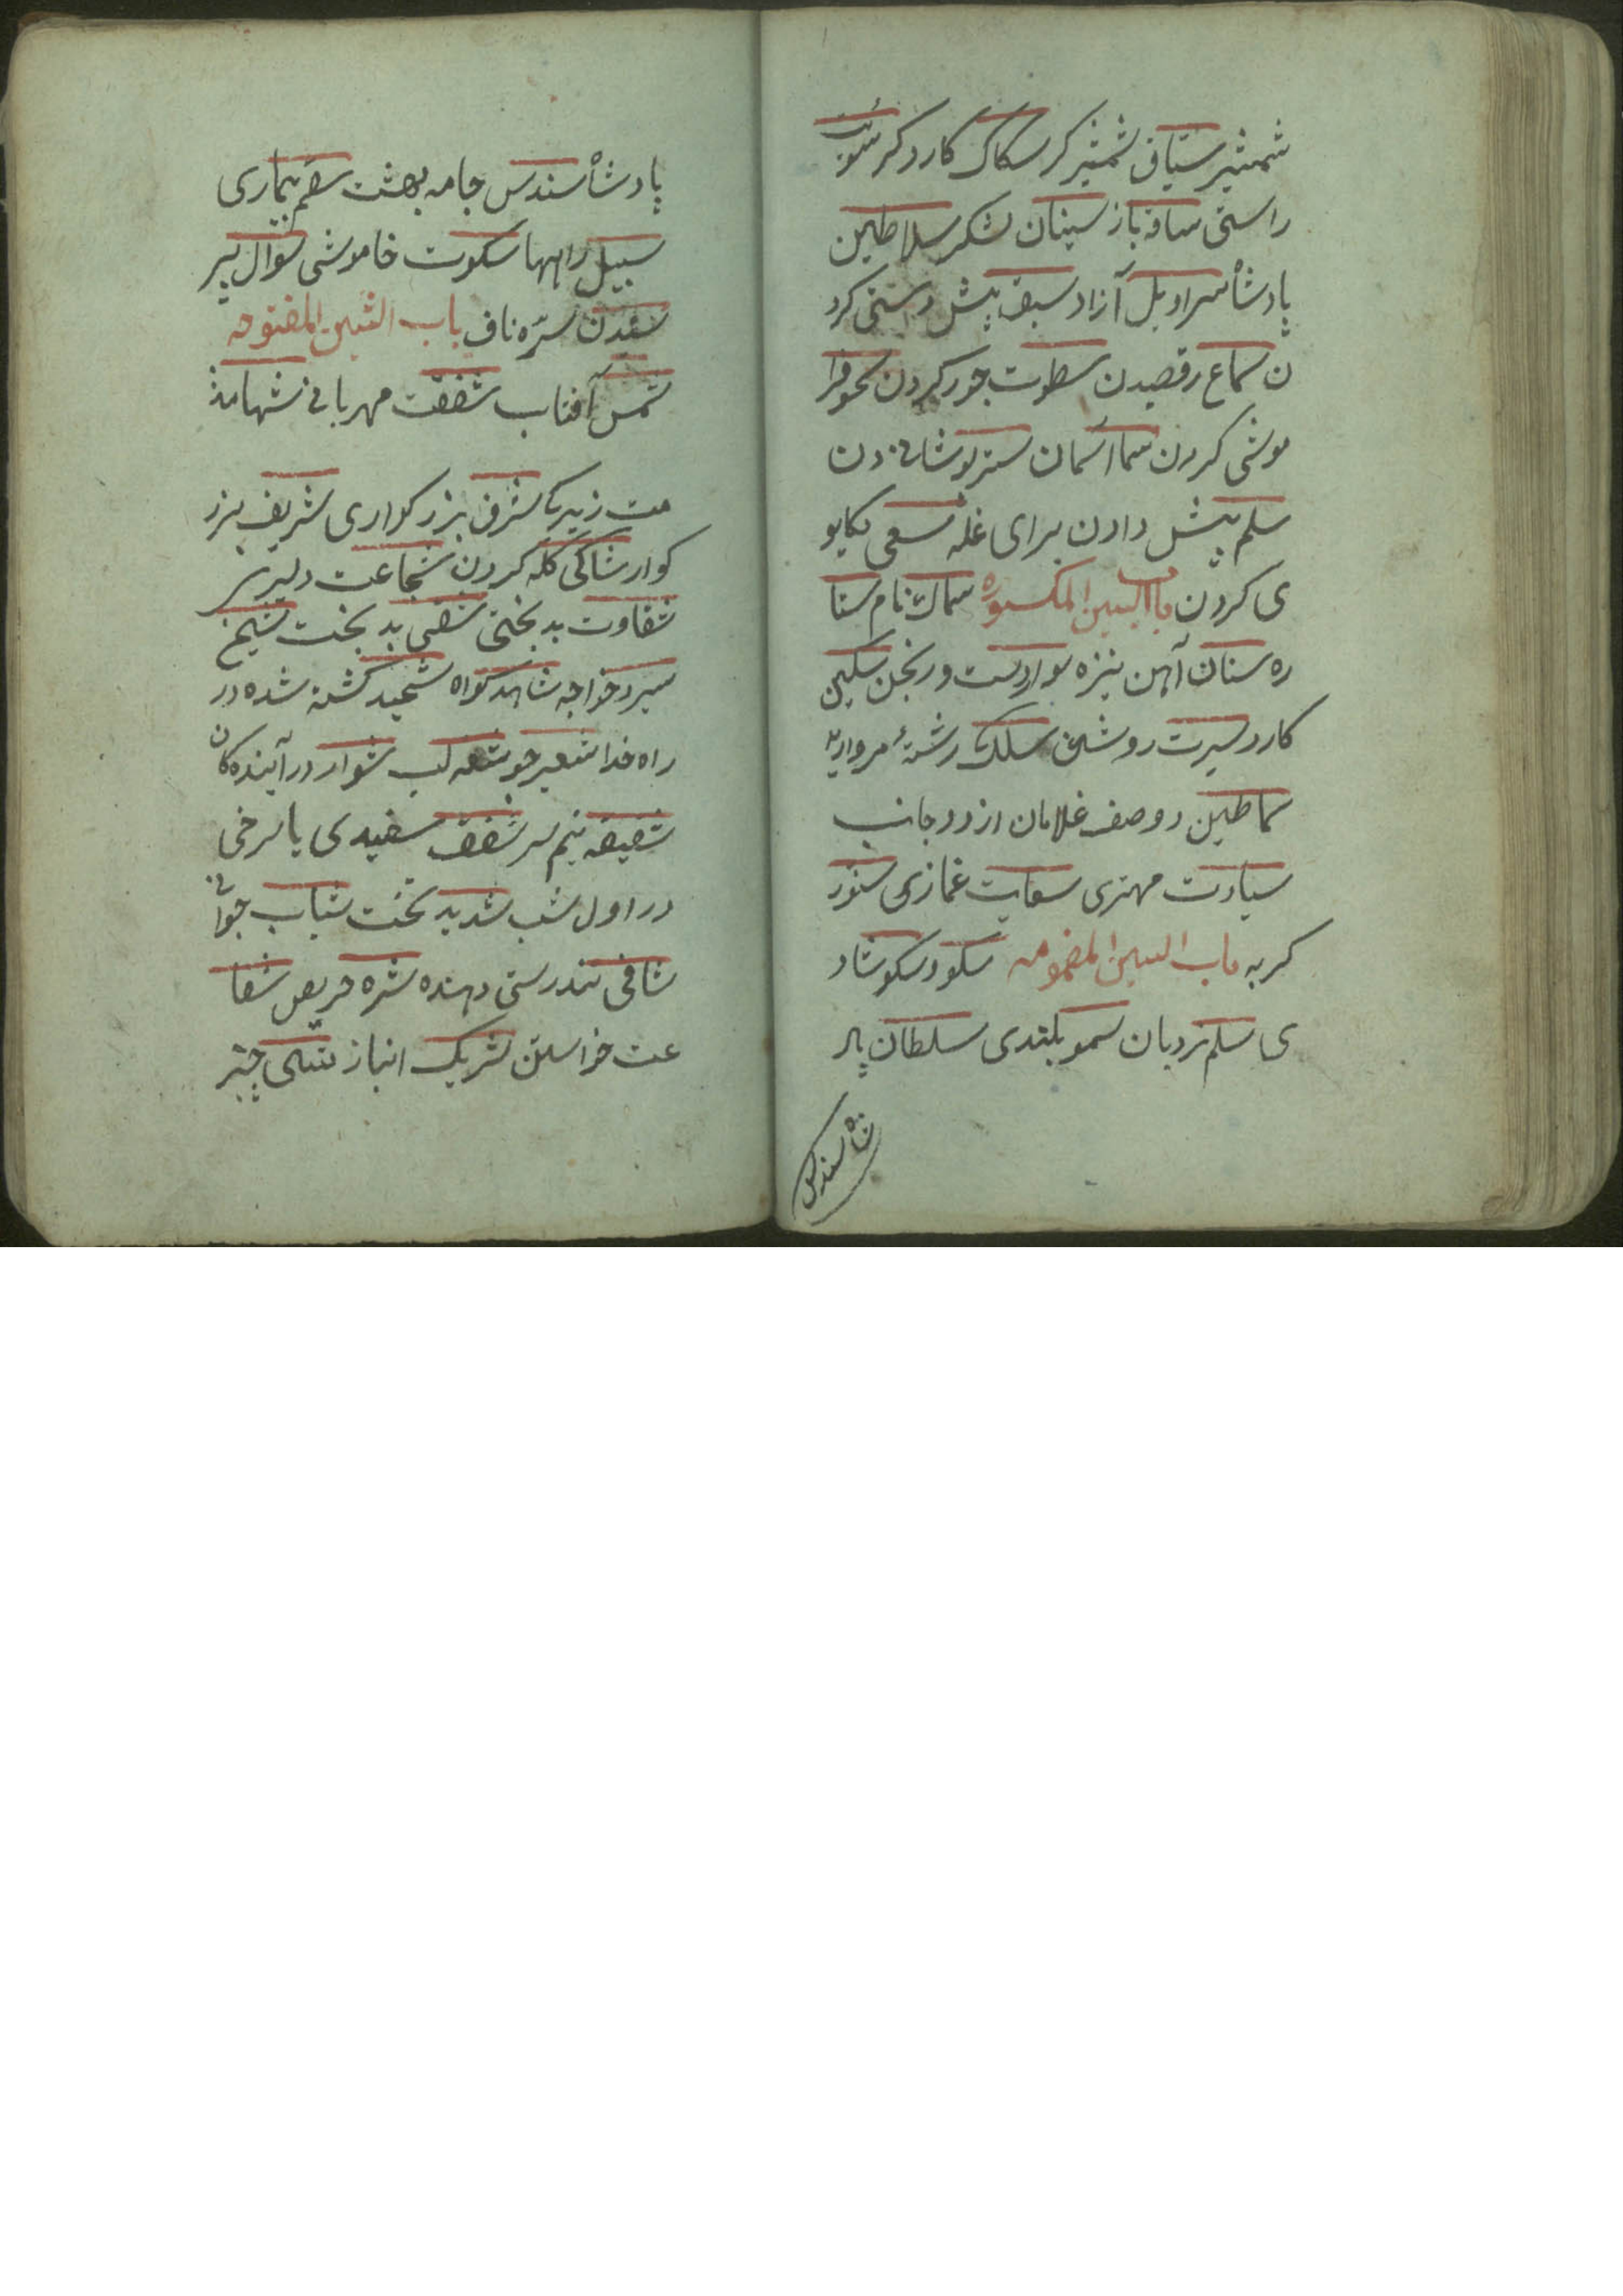 شمشیر سیّاف شمشیر کر سکاک کارد کر
راستی ساقه باز سینان لشکر سلاطین
پادشأ سراویل آزاد سبق پیش دستی کرد
ن سماع رقصیدن سطوت جور کردن سحو فرا
موشی کردن سما آسمان ستر پوشانیدن
سلم پیش دادن برای غله سعی تکاپو
ی کردن باب السین المکسوره سماک نام ستا
ره سنان آهن نیزه سوار دست ورنجن سکین
کارد سیرت روشن سلک رشتهٔ مروارید
سماطین دو صف غلامان از دو جانب
سیادت مهتری سعایت غمازی سنور
کربه باب السین المضمومه سکو و سکو شاد
ی سلم نردبان سمو بلندی سلطان پاد
شاه سندس
پادشأ سندس جامه بهشت سقم بیماری
سبیل راهها سکوت خاموشی سؤال پر
سیدن سرّه ناف باب الشین المفتوحه
شمس آفتاب شفقت مهربانی شهامة
مت زیرکی شرف بزرکواری شریف بزر
کوار شاکی کله کردن شجاعت دلیری
شقاوت بدبختی شقی بدبخت شیخ
سیر و خواجه شاهد کواه شهید کشته شده در
راه خدا شعیر جو شفه لب شوارد رآینده کان
شقیقه نیم سر شفق سفیدی یا سرخی
در اول شب شدید سخت شباب جوانی
شافی تندرستی دهنده شره حریص شفا
عت خواستن شریک انباز شی چیز